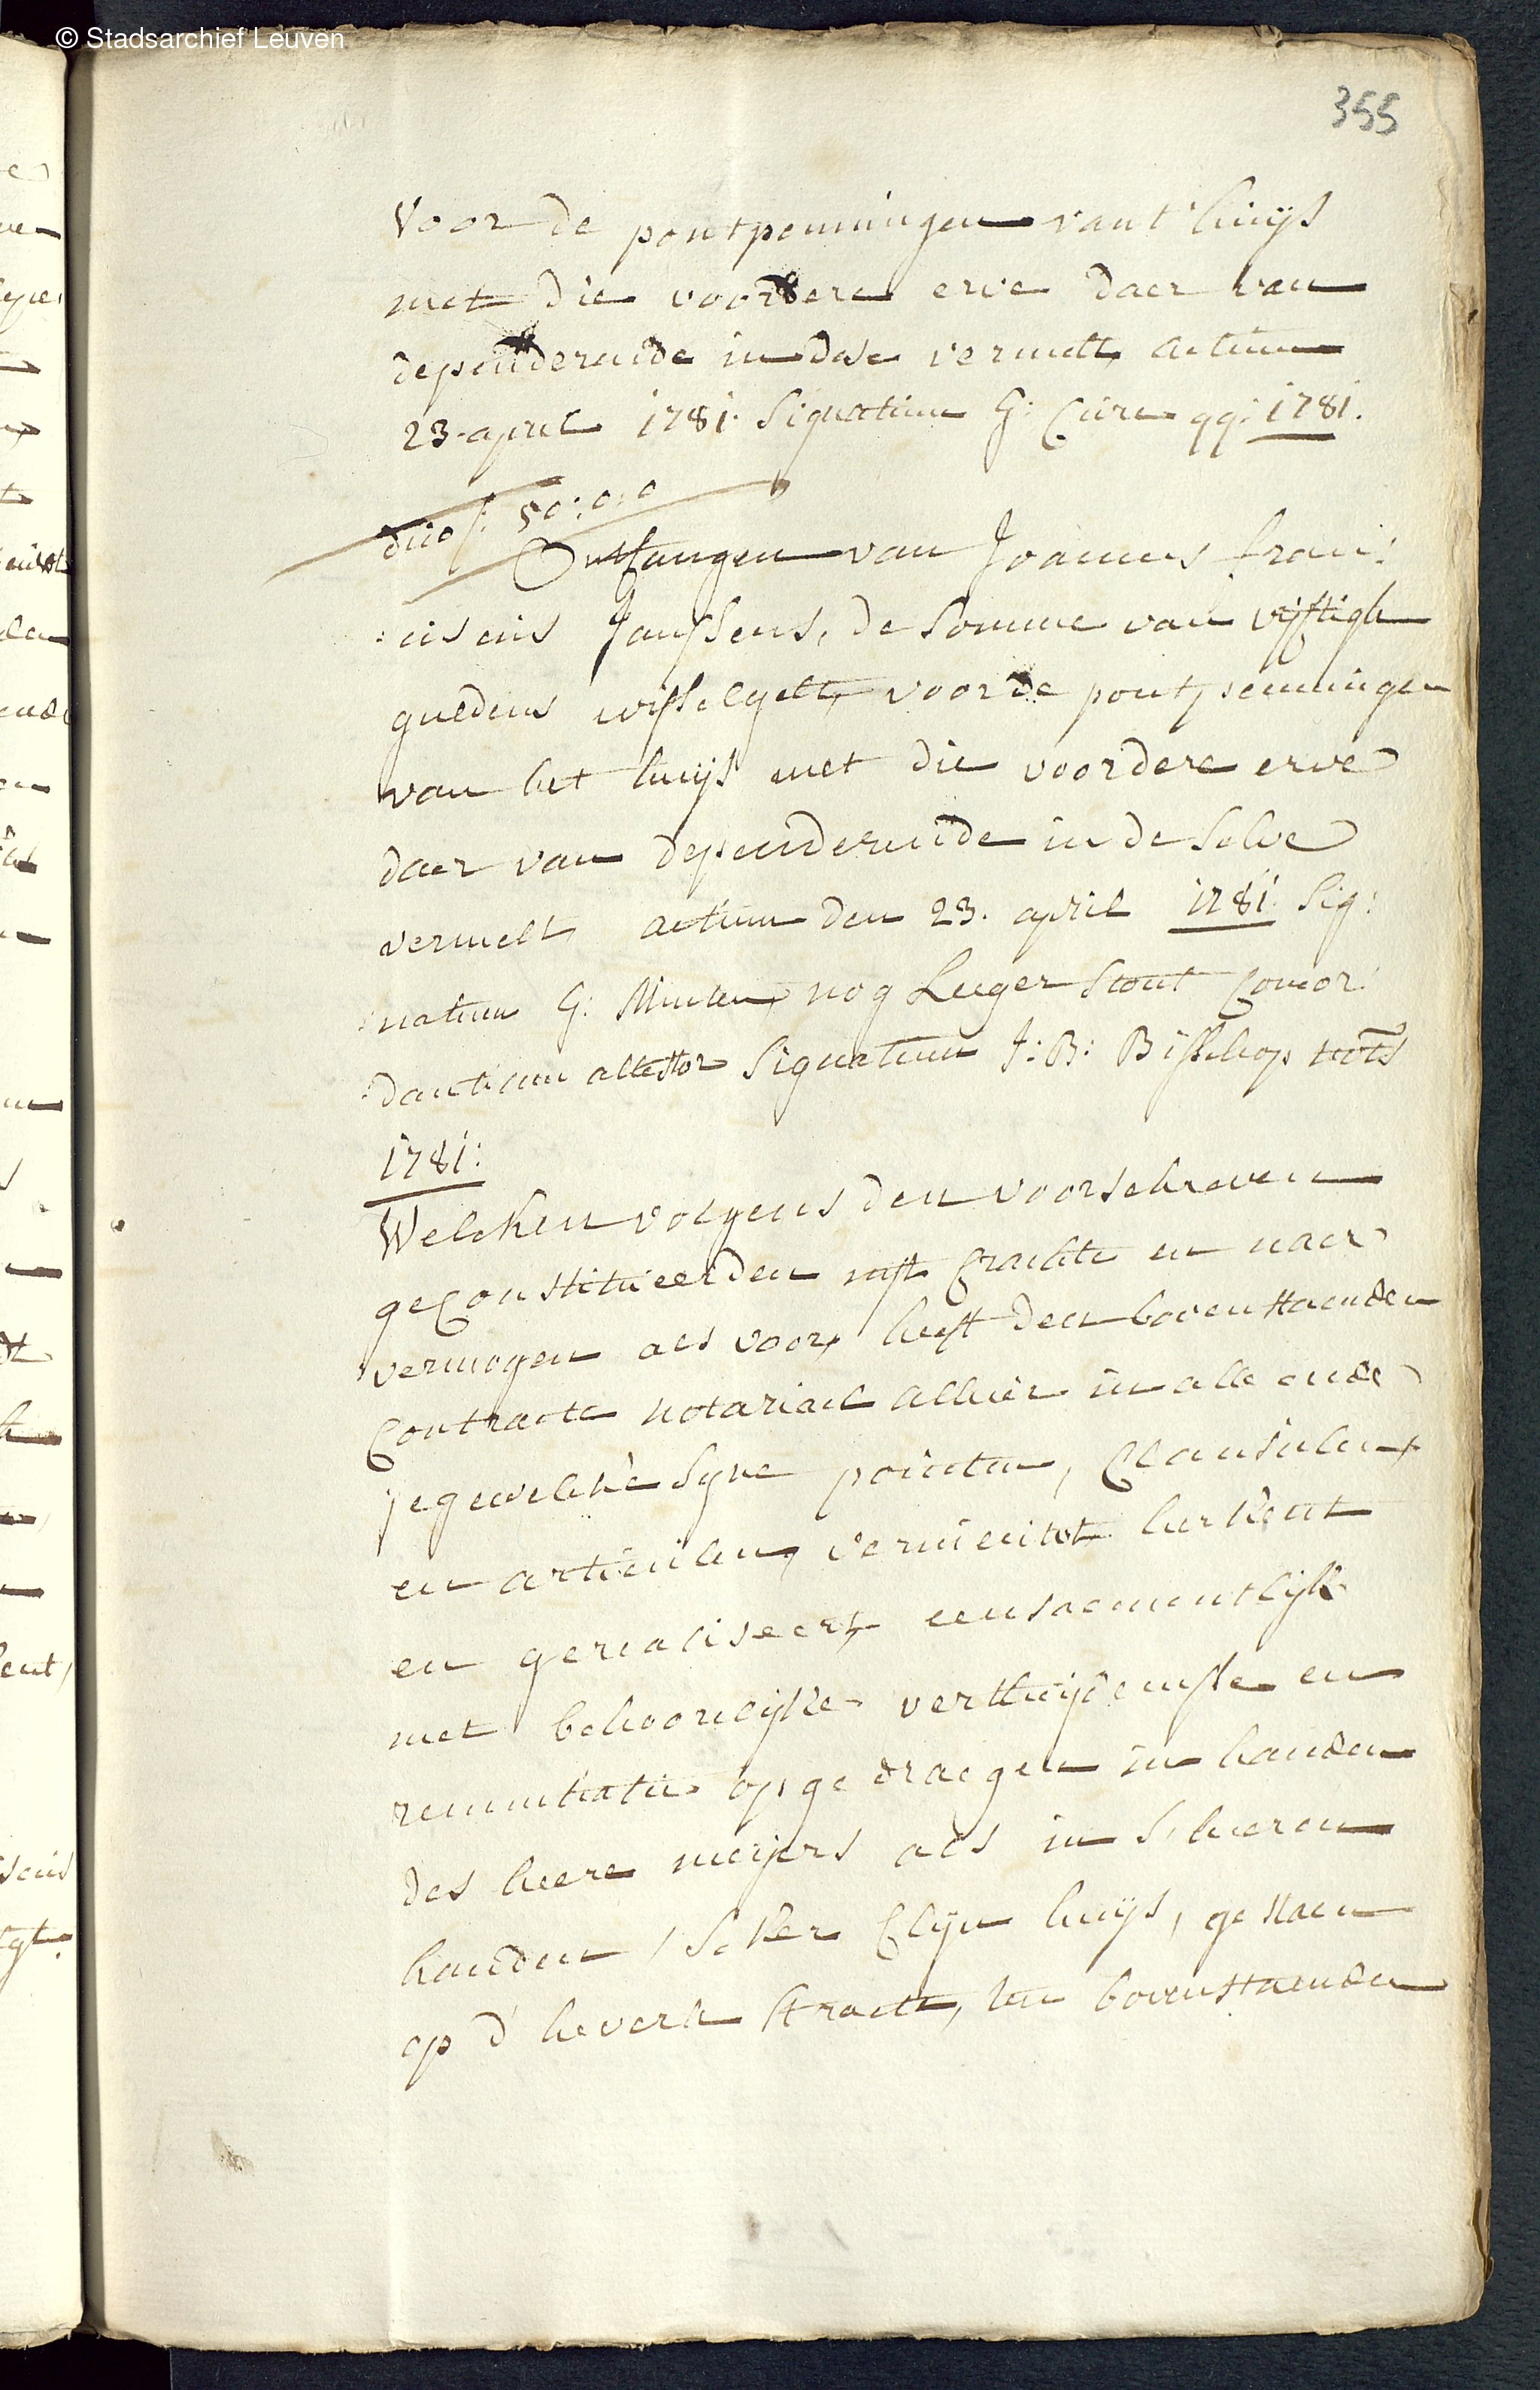 © Stadsarchief Leuven
355
Voor de pontpenningen vant huijs
met die voordere erve daer van
dependerende in dese vermelt, actum
23. april 1781. Signatum G: Cuire qq: 1781.
50:0:0
Ontfangen van Joannes fran:
:ciscus Janssens, de somme van vijftigh
guldens wisselgelt, voor de pontpenningen
van het huijs met die voordere erve
daer van dependerende in de selve
vermelt, actum den 23. april 1781. Sig:
:natum G: Minten, nog Leeger stont Concor:
:dantiam attestor Signatum J: B: Bisschop nots
1781:
Welcken volgens den voorschreven
geconstitueerden uijt crachte en naer
vermogen als voor, heeft den bovenstaenden
Contracte notariael alhier in alle ende
jegewelcke syne pointen, Clausulen,
en articulen, vernieuwt herkent
en gerealiseert, eensaementlijk
met behoorelijke verthijdenisse en
renuntiatie opgedraegen in handen
des heere meijers als in s'heeren
handen, seker Clijn huijs, gestaen
op d' hevers straete, ten bovenstaenden